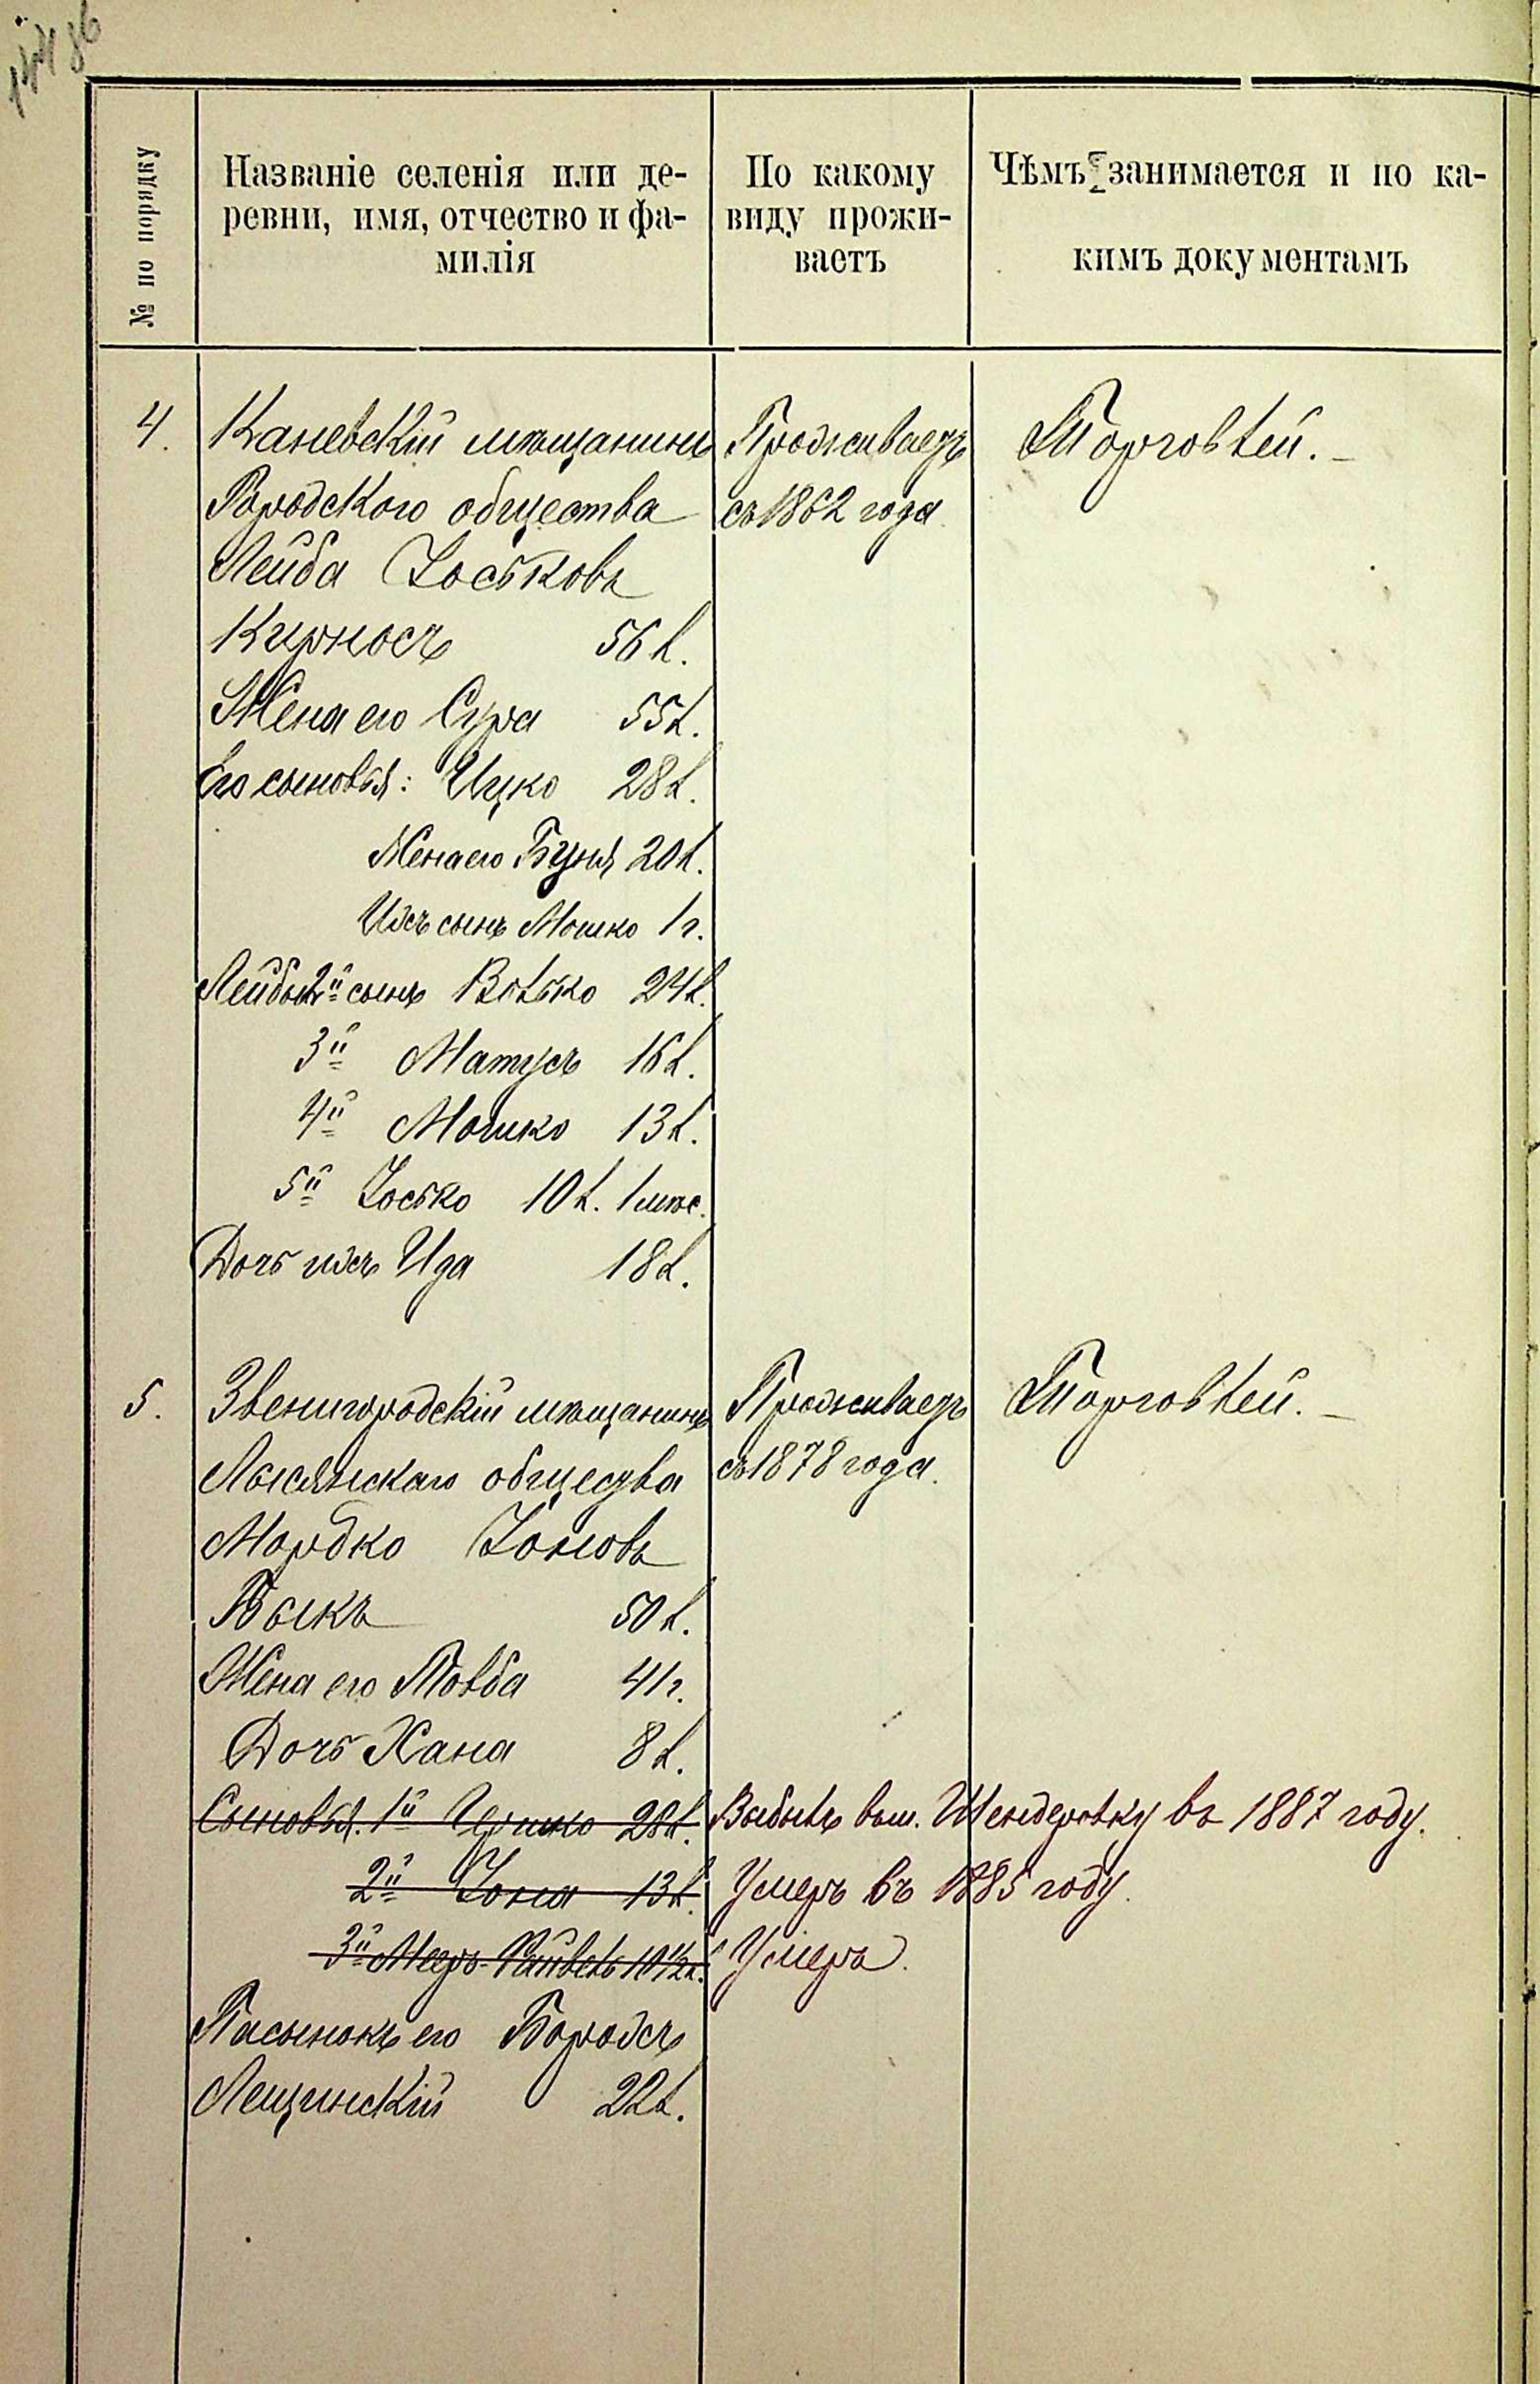 № по порядку
Названіе селенія или де-
ревни, имя, отчество и фа-
милія
По какому
виду прожи-
ваетъ
Чѣмъ занимается и по ка-
кимъ документамъ
4.
Каневскій мѣщанинъ
Городского общества
Лейба Іоськовъ
Кирносъ 56 л.
Жена его Сура 55 л.
Его сыновья: Ицко 28 л.
Жена его Буня 20 л.
Ихъ сынъ Мошко 1 г.
Лейбы 2й сынъ Волько 24 л.
3й Матусъ 16 л.
4й Мошко 13 л.
5й Іосько 10 л. 1 мѣс.
Дочь ихъ Ида 18 л.
Проживаетъ
съ 1862 года
Торговлей. —
5.
Звенигородскій мѣщанинъ
Лысянскаго общества
Мордко Іоновъ
Быкъ 50 л.
Жена его Товба 41 г.
Дочь Хана 8 л.
Сыновья. 1й 28 л. Выбылъ въ м. Шендеровку въ 1887 году.
2й Іона 13 л. Умеръ въ 1885 году.
3й Меер- 10 1/2 л. Умеръ.
Пасынокъ его Борохъ
Лещинскій 22 л.
Проживаетъ
съ 1878 года.
Торговлей. —